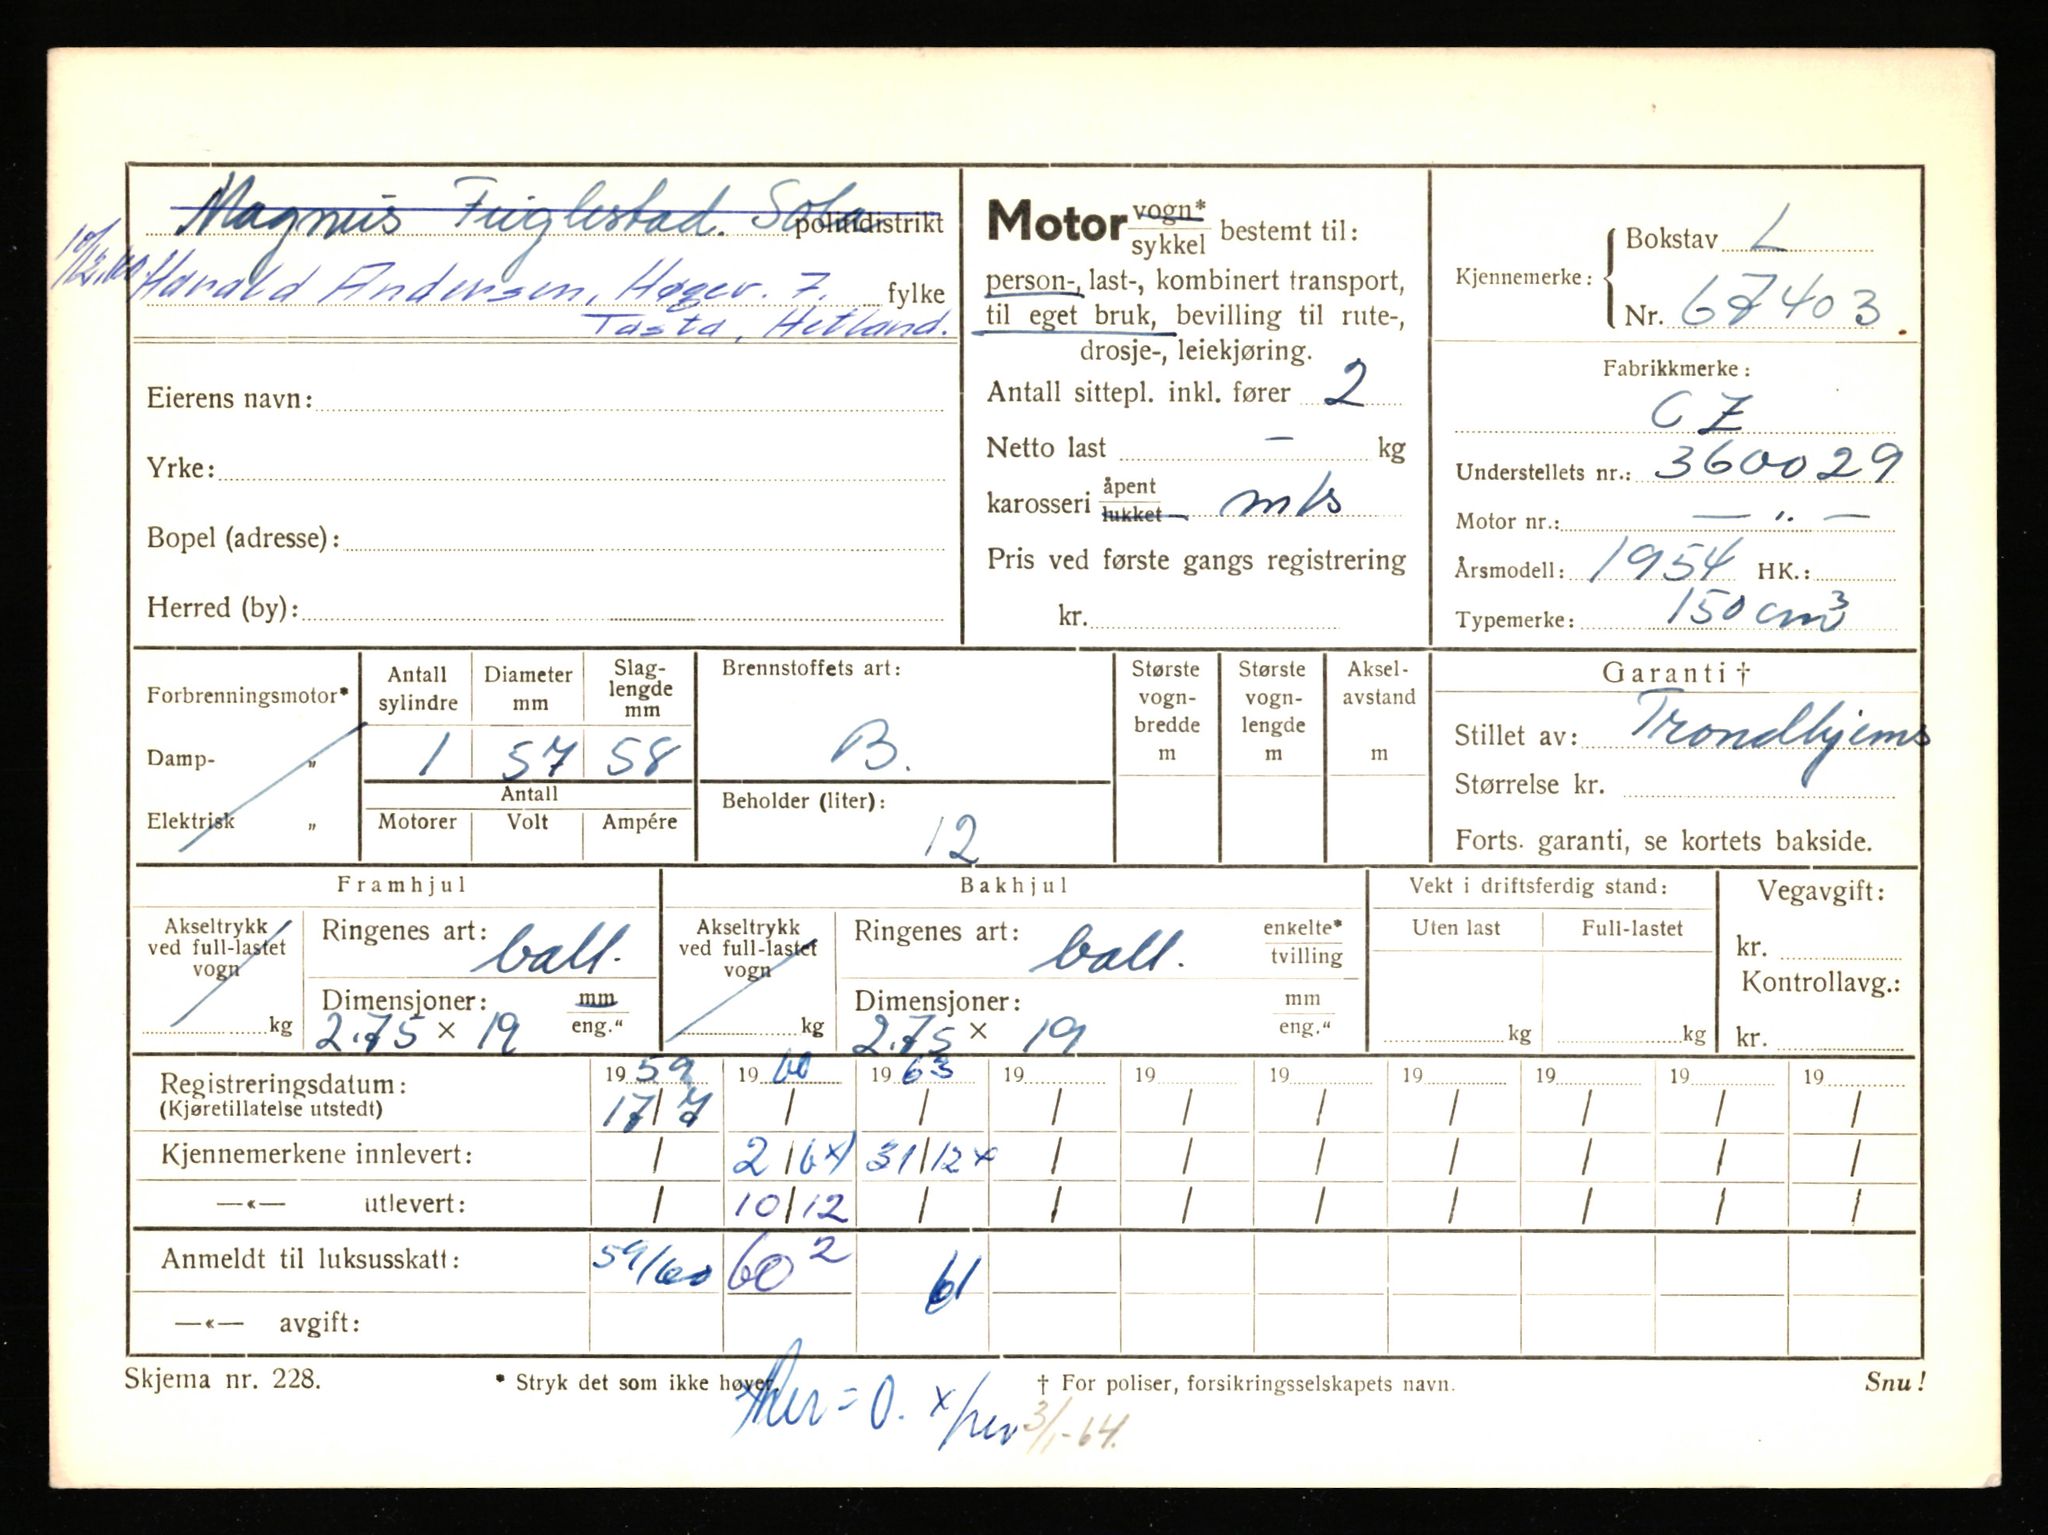 Magnus Fuglestad. Sola politidistrikt
10/12.60. Harald Andersen, Høgev. 7. fylke
Tasta, Hetland.
Eierens navn:
Yrke:
Bopel (adresse):
Herred (by):
Motor vogn* sykkel bestemt til:
person-, last-, kombinert transport,
til eget bruk, bevilling til rute-,
drosje-, leiekjøring.
Antall sittepl. inkl. fører 2
Netto last — kg
karosseri åpent lukket mks
Pris ved første gangs registrering
kr.
Kjennemerke: Bokstav L
Nr. 67403
Fabrikkmerke:
CZ
Understellets nr.: 360029
Motor nr.: — „ —
Årsmodell: 1954 HK.:
Typemerke: 150 cm3
Forbrenningsmotor*
Damp- „
Elektrisk „
Antall sylindre Diameter mm Slag-lengde mm
1 57 58
Antall
Motorer Volt Ampére
Brennstoffets art:
B.
Beholder (liter):
12
Største vogn-bredde m
Største vogn-lengde m
Aksel-avstand m
Garanti †
Stillet av: Trondhjems
Størrelse kr.
Forts. garanti, se kortets bakside.
Framhjul
Akseltrykk ved full-lastet vogn kg
Ringenes art: ball.
Dimensjoner: mm eng."
2.75 × 19
Bakhjul
Akseltrykk ved full-lastet vogn kg
Ringenes art: ball. enkelte* tvilling
Dimensjoner: mm eng."
2.75 × 19
Vekt i driftsferdig stand:
Uten last Full-lastet
kg kg
Vegavgift:
kr.
Kontrollavg.:
kr.
Registreringsdatum: 1959 1960 1963 19 19 19 19 19 19 19
(Kjøretillatelse utstedt) 17/7 / / / / / / / / /
Kjennemerkene innlevert: / 2/6 x) 31/12 x / / / / / / /
—«— utlevert: / 10/12 / / / / / / / /
Anmeldt til luksusskatt: 59/60 60 2 61
—«— avgift:
Skjema nr. 228. * Stryk det som ikke høver. † For poliser, forsikringsselskapets navn. Snu!
= 0. x/ 3/1-64.